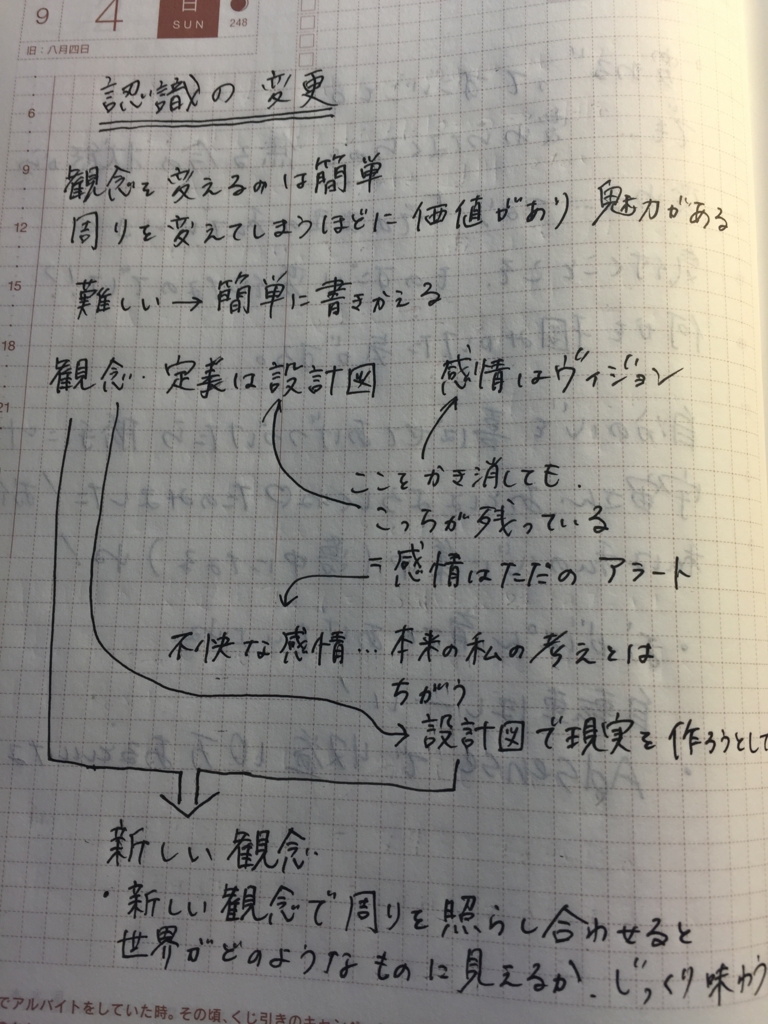 9 4 日
SUN
248
旧：八月四日
認識の変更
6
9
観念を変えるのは簡単
周りを変えてしまうほどに価値があり 魅力がある
12
15
難しい→簡単に書きかえる
18
観念・定義は設計図 感情はヴィジョン
21
ここをかき消しても.
こっちが残っている
=感情はただのアラート
不快な感情…本来の私の考えとは
ちがう
設計図で現実を作ろうとして
新しい観念.
・新しい観念で周りを照らし合わせると
世界がどのようなものに見えるか、じっくり味わう
でアルバイトをしていた時。その頃、くじ引きのキャン